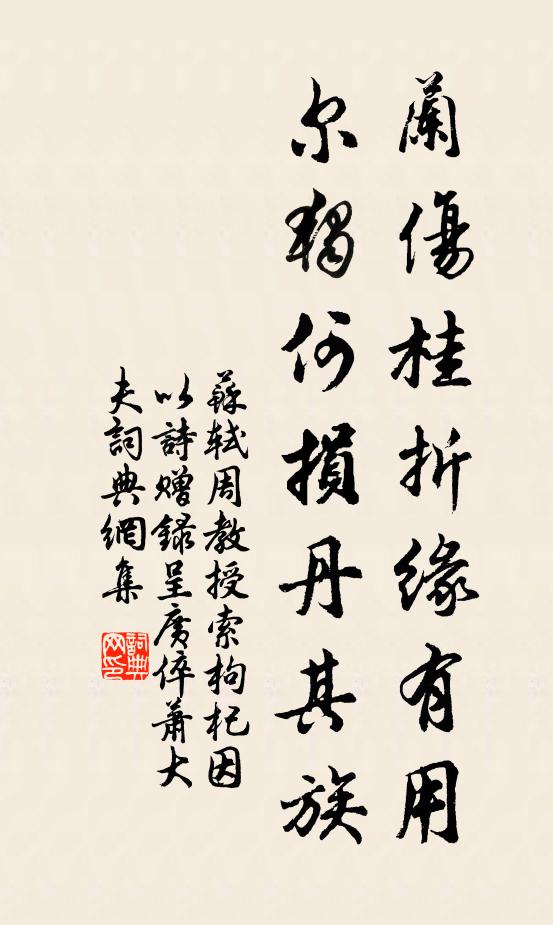 蘭傷桂折緣有用
尔獨何損丹其族
蘇軾周教授索枸杞因
以詩贈録呈廣倅蕭大
夫詞典網集
詞典
网印